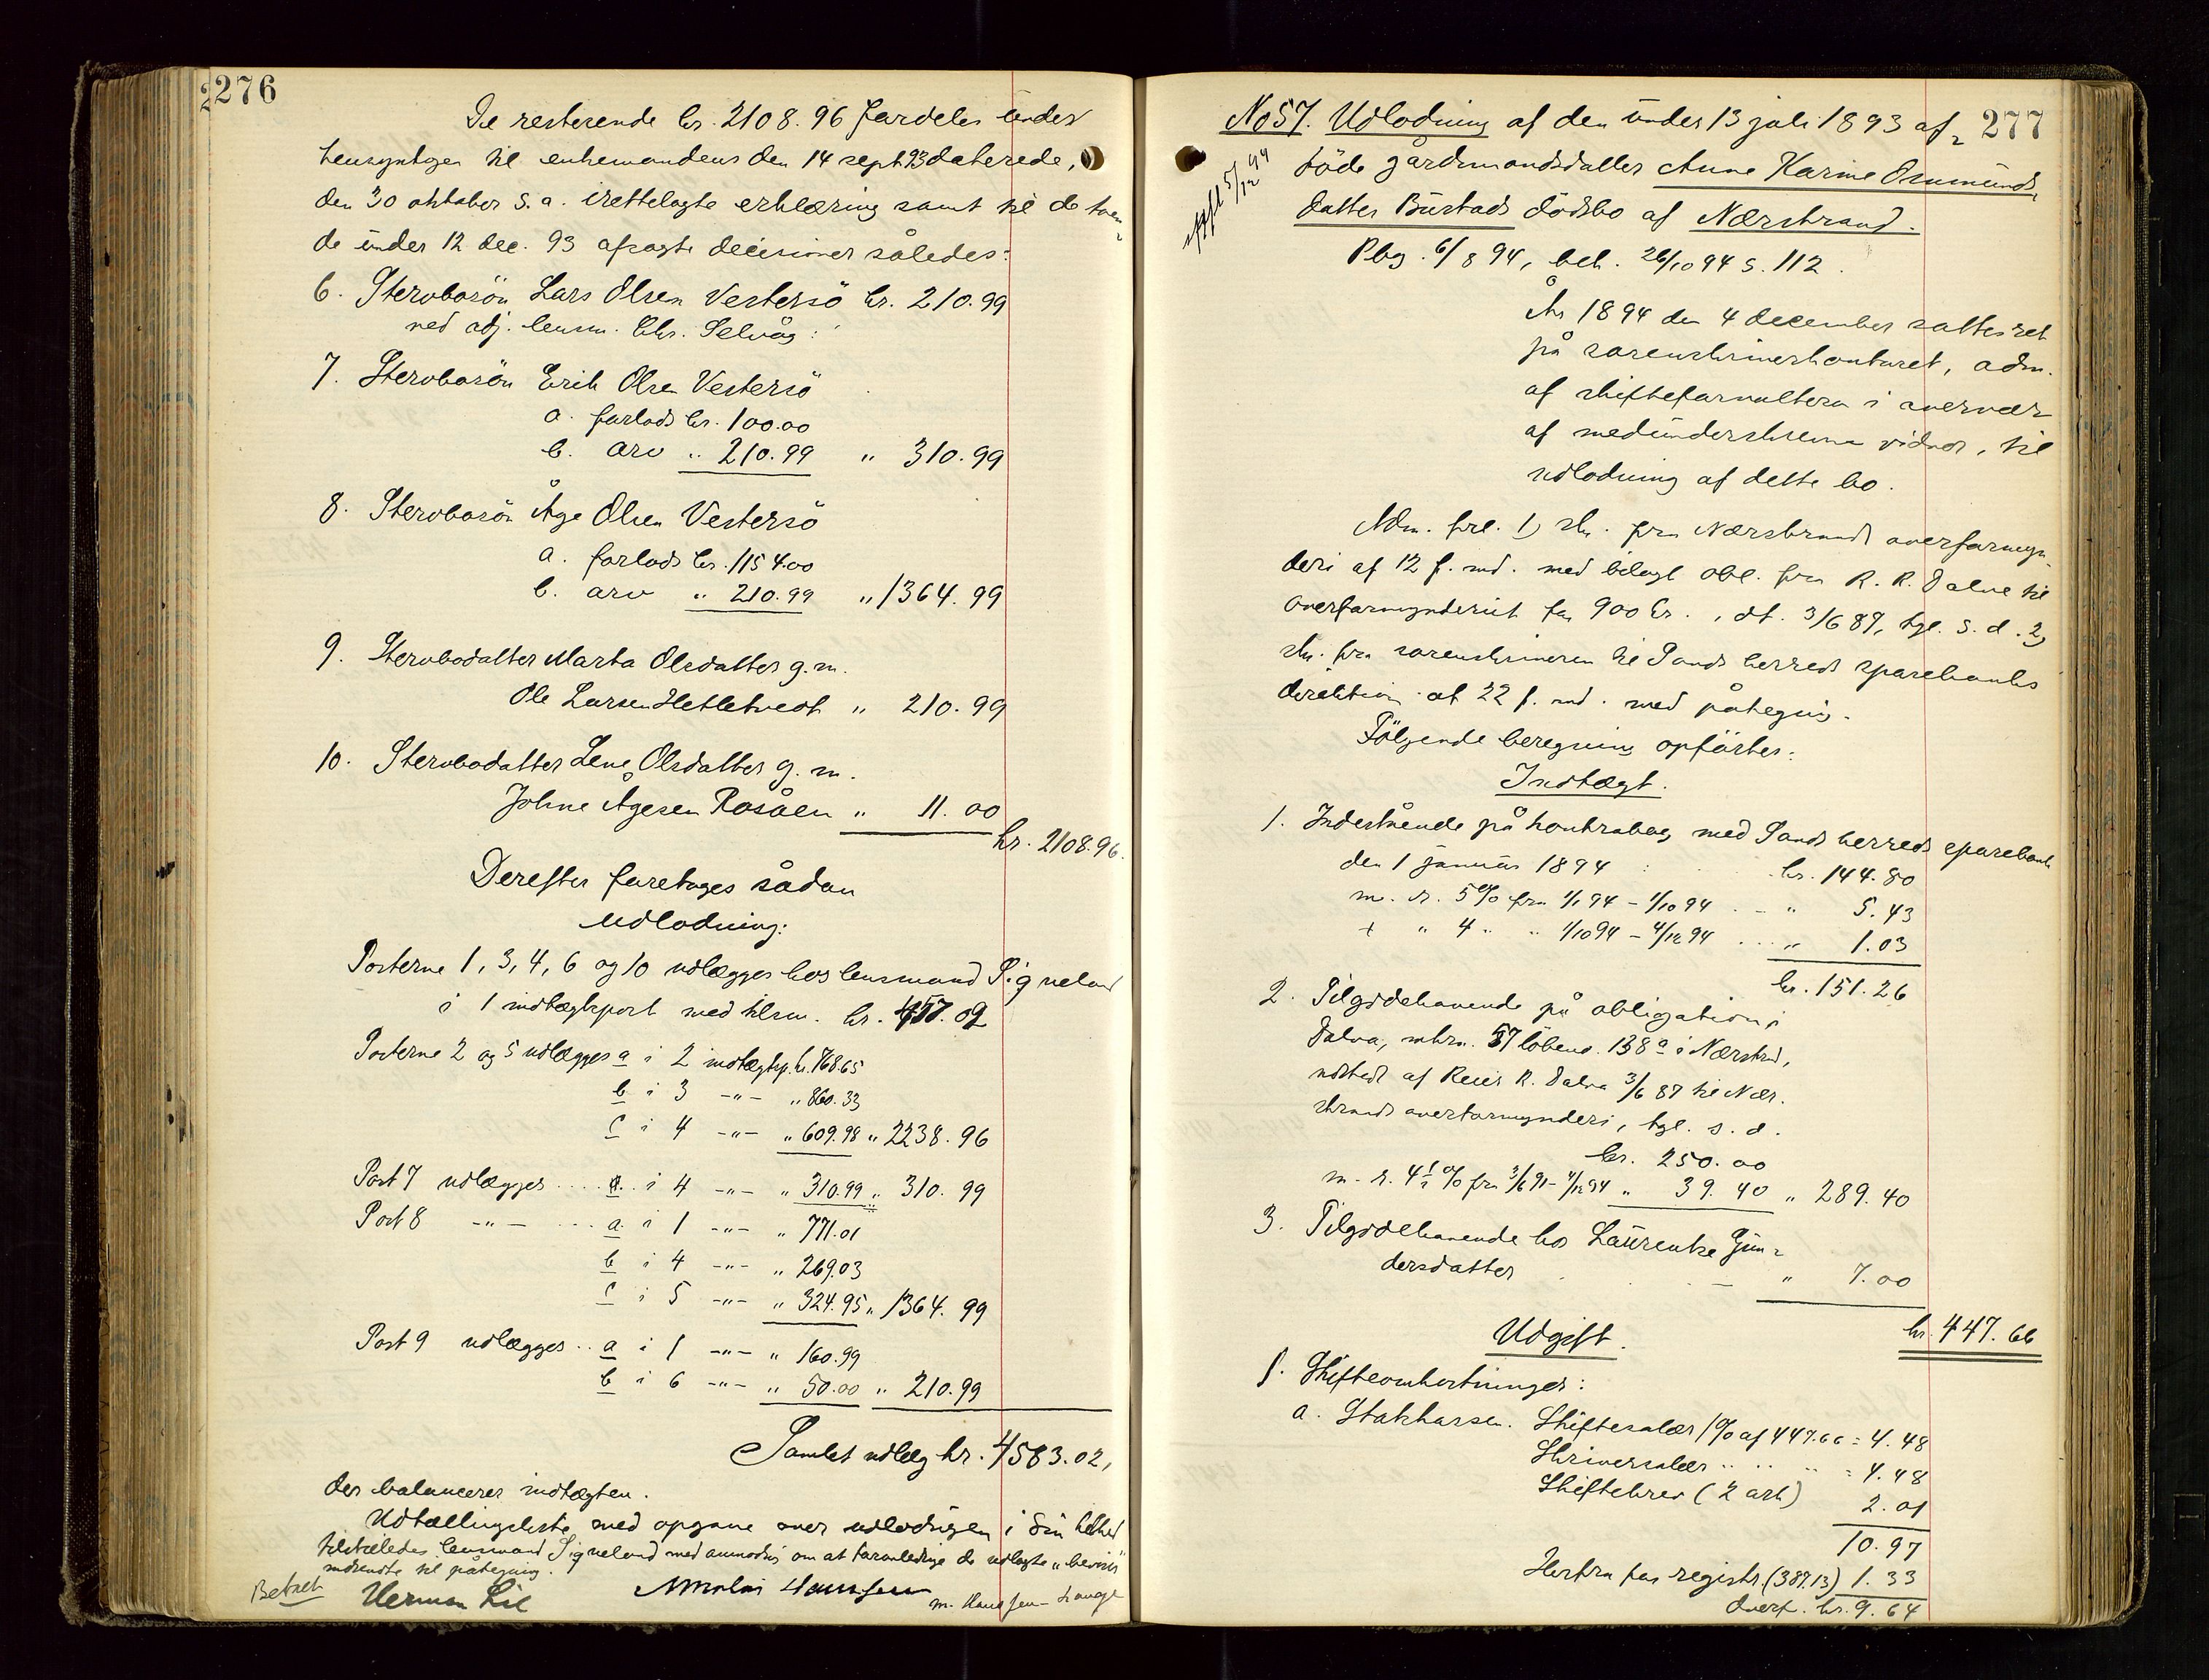 276
De resterende kr. 2108.96 fordeles under
hensyntagen til enkemandens den 14 sept 93 daterede,
den 30 oktober s. a. irettelagte erklæring samt til de tven¬
de under 12 dec. 93 afsagte decisioner således:
6. Stervbosön Lars Olsen Vestersö kr. 210.99
ved adj. lensm. Chr. Selvåg:
7. Stervbosön Erik Olsen Vestersö
a. forlods kr. 100.00
b. arv " 210.99 " 310.99
8. Stervbosön Åge Olsen Vestersö
a. forlods kr. 1154.00
b. arv " 210.99 " 1364.99
9. Stervbodatter Marta Olsdatter g. m.
Ole Larsen Hetletvedt " 210.99
10. Stervbodatter Lene Olsdatter g. m.
Johne Ågesen Rosåen " 11.00
kr. 2108.96.
Derefter foretages sådan
udlodning:
Posterne 1, 3, 4, 6 og 10 udlægges hos lensmand Signeland
i 1 indtægtspost med tilsm. kr. 457.09
Posterne 2 og 5 udlægges a i 2 indtægtsp. kr. 768.65
b i 3 -"- " 860.33
c i 4 -"- " 609.98 " 2238.96
Post 7 udlægges .... a. i 4 -"- " 310.99 " 310.99
Post 8 -"- ... a i 1 -"- " 771.01
b i 4 -"- " 269.03
c i 5 -"- " 324.95 " 1364.99
Post 9 udlægges .. a i 1 -"- " 160.99
b i 6 -"- " 50.00 " 210.99
Samlet udlæg kr. 4583.02,
der balancerer indtægten.
Udtællingsliste med opgave over udlodningen i sin helhed
tilstilledes lensmand Signeland med anmodning om at foranledige de udlagte "beviser"
indsendte til påtegning.
Betalt Herman Lie Nikolai Hanssen m. Hanssen-Hauge
277
No 57. Udlodning af den under 13 juli 1893 af¬
döde gårdmandsdatter Anne Karine Osmunds¬
datter Bustads dödsbo af Nærstrand.
Pbg. 6/8 94, beh. 26/10 94 s. 112.
5/12 94
År 1894 den 4 december sattes ret
på sorenskriverkontoret, adm.
af skifteforvalteren i overvær
af medunderskrevne vidner, til
udlodning af dette bo.
Adm. frel. 1) skr. fra Nærstrands overformyn¬
deri af 12 f. md. med bilagt obl. fra R. R. Dalve til
overformynderiet for 900 kr., dt. 3/6 87, tgl. s. d. 2)
skr. fra sorenskriveren til Sands herreds sparebanks
direktion af 22 f. md. med påtegning.
Fölgende beregning opförtes:
Indtægt.
1. Indestående på kontrabog med Sands herreds sparebank
den 1 januar 1894 : kr. 144.80
m. r. 5 % fra 1/1 94 - 1/10 94 . - " 5.43
+ " 4 " " 1/10 94 - 4/12 94 ... " 1.03
kr. 151.26
2. Tilgodehavende på obligation i
Dalva, mtrn. 57 löbeno. 138 a i Nærstrd,
udstedt af Reier R. Dalva 3/6 87 til Nær¬
strands overformynderi, tgl. s. d.
kr. 250.00
m. r. 4 1/2 % fra 3/6 91 - 4/12 94 " 39.40 " 289.40
3. Tilgodehavende hos Laurentze Gun¬
dersdatter - " 7.00
kr. 447.66
Udgift.
1. Skifteomkostninger:
a. Statskassen. Skiftesalær 1 % af 447.66 = 4.48
Skriversalær " " " = 4.48
Skiftebrev (2 ark) 2.01
10.97
Herfra for registr. (387.13) 1.33
Overf. kr. 9.64